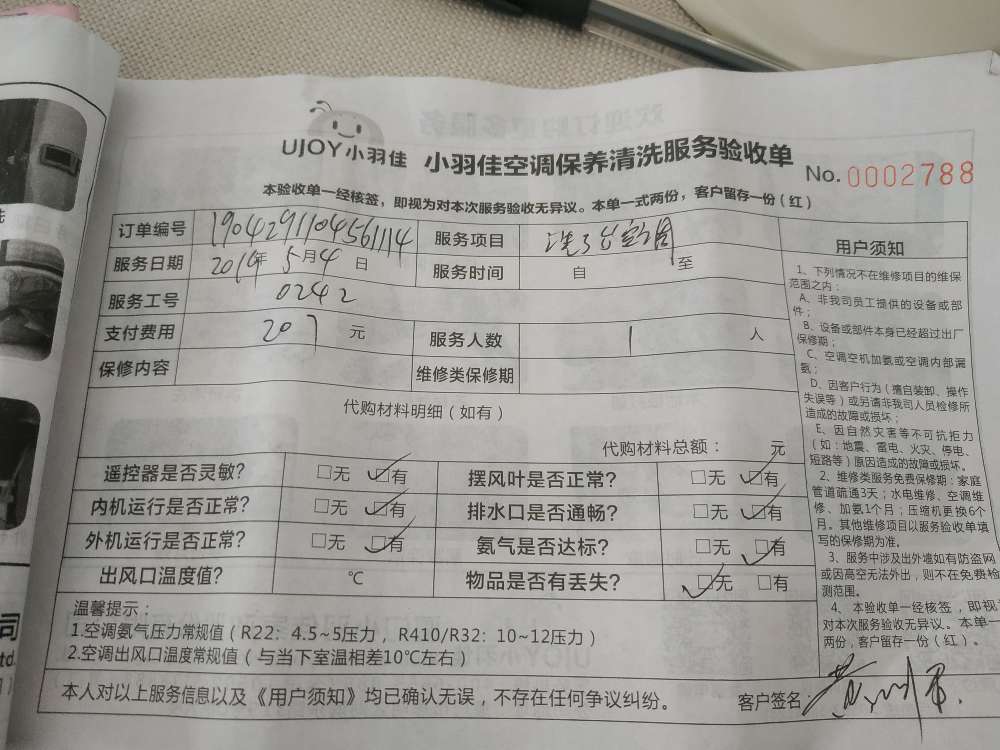 UJOY小羽佳 小羽佳空调保养清洗服务验收单 No.0002788
本验收单一经核签，即视为对本次服务验收无异议。本单一式两份，客户留存一份（红）
订单编号 1904291104561114 服务项目 洗3台空调
服务日期 2019年5月4日 服务时间 自 至
服务工号 0242
支付费用 207 元 服务人数 1 人
保修内容 维修类保修期
代购材料明细（如有）
代购材料总额： 元
遥控器是否灵敏？ □无 ☑有 摆风叶是否正常？ □无 ☑有
内机运行是否正常？ □无 ☑有 排水口是否通畅？ □无 ☑有
外机运行是否正常？ □无 ☑有 氨气是否达标？ □无 ☑有
出风口温度值？ ℃ 物品是否有丢失？ ☑无 □有
温馨提示：
1.空调氨气压力常规值（R22：4.5~5压力，R410/R32：10~12压力）
2.空调出风口温度常规值（与当下室温相差10℃左右）
本人对以上服务信息以及《用户须知》均已确认无误，不存在任何争议纠纷。 客户签名：
用户须知
1、下列情况不在维修项目的维保
范围之内：
A、非我司员工提供的设备或部
件；
B、设备或部件本身已经超过出厂
保修期；
C、空调空机加氨或空调内部漏
氨；
D、因客户行为（擅自装卸、操作
失误等）或另请非我司人员检修所
造成的故障或损坏；
E、因自然灾害等不可抗拒力
（如：地震、雷电、火灾、停电、
短路等）原因造成的故障或损坏。
2、维修类服务免费保修期：家庭
管道疏通3天；水电维修、空调维
修、加氨1个月；压缩机更换6个
月。其他维修项目以服务验收单填
写的保修期为准。
3、服务中涉及出外墙如有防盗网
或因高空无法外出，则不在免费检
测范围。
4、本验收单一经核签，即视
对本次服务验收无异议。本单一
两份，客户留存一份（红）。
司
td.
洗